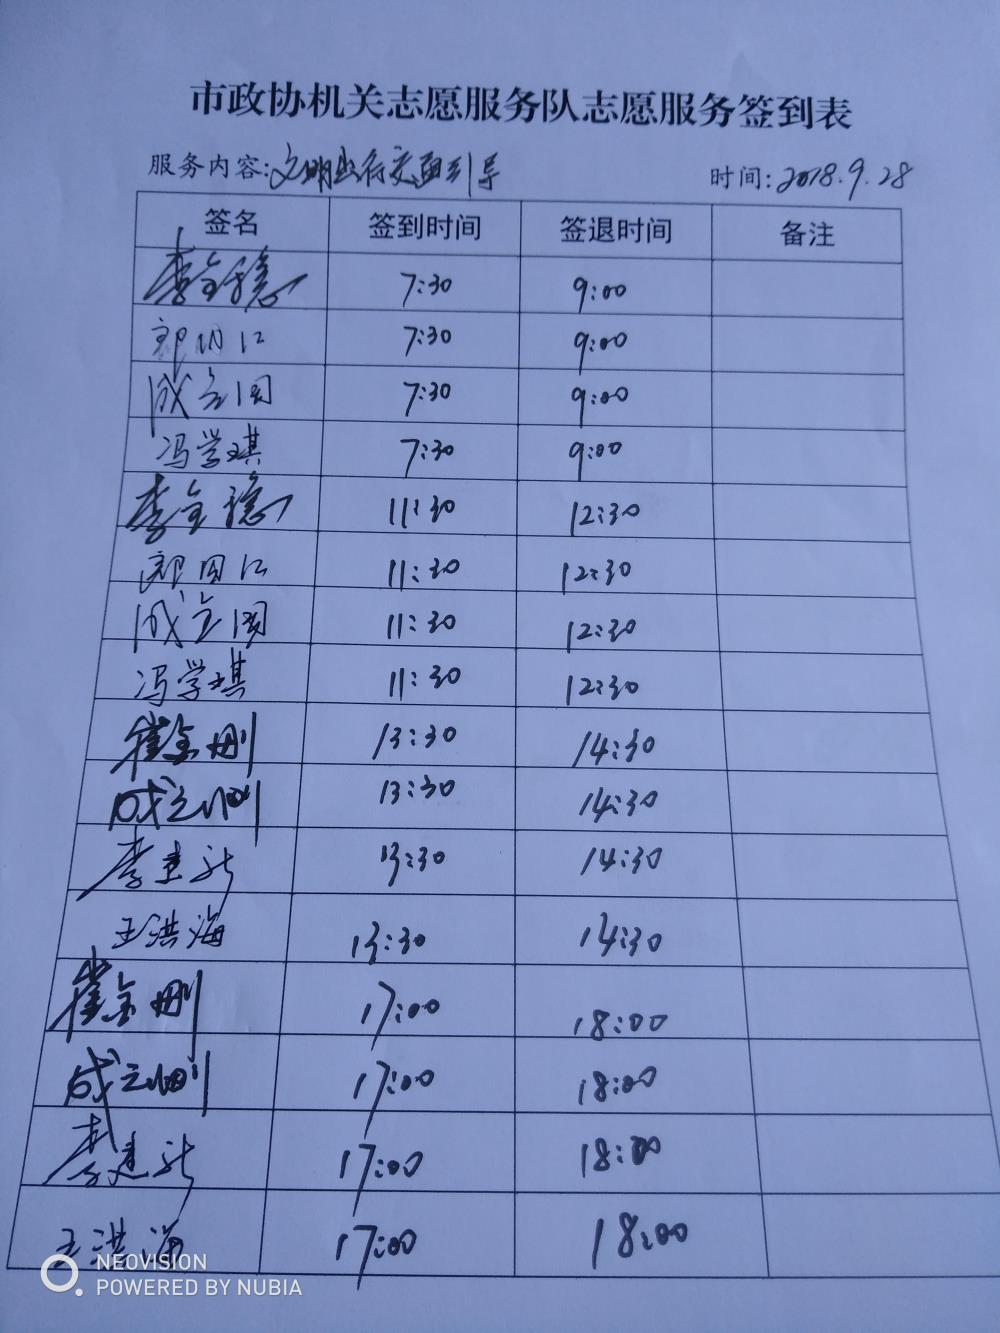 市政协机关志愿服务队志愿服务签到表
服务内容:文明出行交通引导 时间:2018.9.28
签名 签到时间 签退时间 备注
李金穗 7:30 9:00
郑国江 7:30 9:00
成立国 7:30 9:00
冯学琪 7:30 9:00
李金穗 11:30 12:30
郑国江 11:30 12:30
成立国 11:30 12:30
冯学琪 11:30 12:30
崔金刚 13:30 14:30
成立刚 13:30 14:30
李建新 13:30 14:30
王洪海 13:30 14:30
崔金刚 17:00 18:00
成立刚 17:00 18:00
李建新 17:00 18:00
王洪海 17:00 18:00
NEOVISION
POWERED BY NUBIA